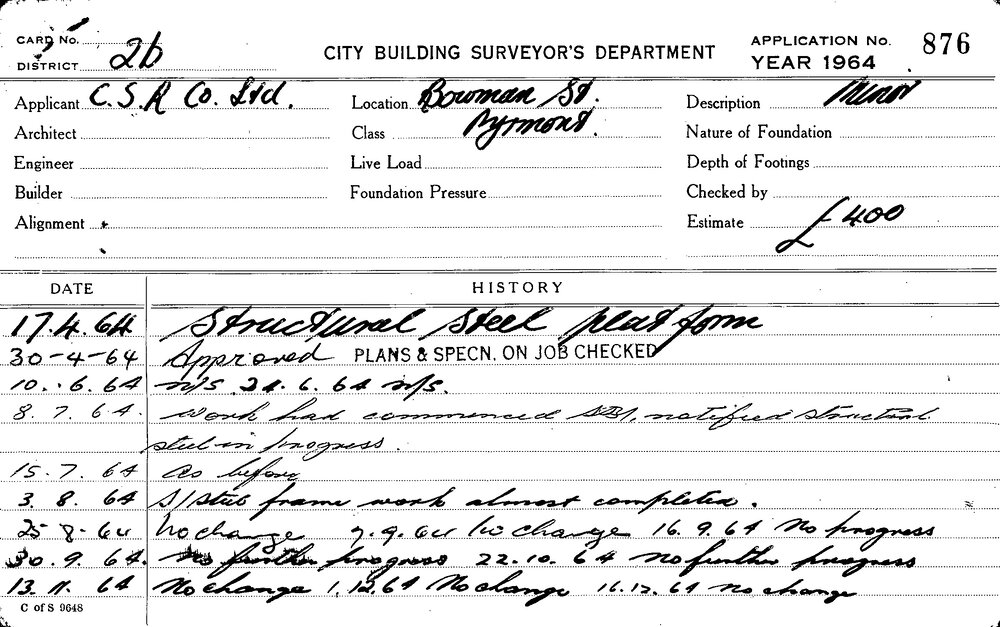 CARD No.
DISTRICT 2b
CITY BUILDING SURVEYOR'S DEPARTMENT
APPLICATION No. 876
YEAR 1964
Applicant C.S.R Co. Ltd. Location Bowman St. Description Minor
Architect Class Pyrmont. Nature of Foundation
Engineer Live Load Depth of Footings
Builder Foundation Pressure Checked by
Alignment Estimate £400
DATE HISTORY
17.4.64 Structural Steel platform
30-4-64 Approved PLANS & SPECN. ON JOB CHECKED
10.6.64 N/S 24.6.64 N/S.
8.7.64. work had commenced notified structural
steel in progress.
15.7.64 as before
3.8.64 S/Steel frame work almost completed.
25-8-64 No change 7.9.64 No change 16.9.64 No progress
30.9.64. No further progress 22.10.64 No further progress
13.11.64 No change 1.12.64 No change 16.12.64 no change
C of S 9648